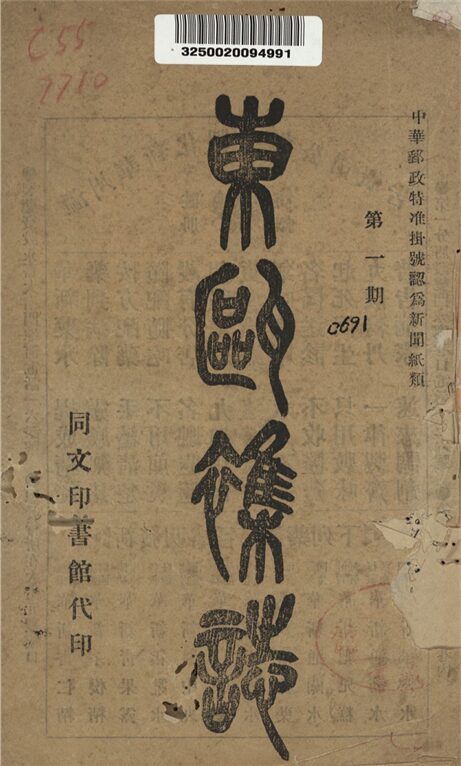 C55
7710
3250020094991
中華郵政特准掛號認爲新聞紙類
第一期
c691
東甌雜誌
同文印書館代印